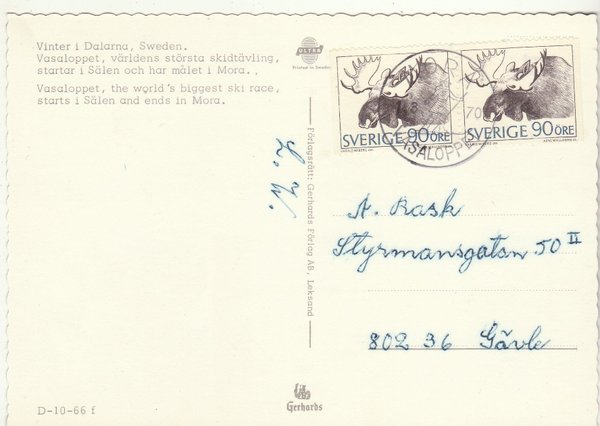 Vinter i Dalarna, Sweden.
Vasaloppet, världens största skidtävling,
startar i Sälen och har målet i Mora. ,
Vasaloppet, the world's biggest ski race,
starts i Sälen and ends in Mora.
ULTRA
Printed in Sweden
SVERIGE 90 ÖRE
SVERIGE 90 ÖRE
MORA
70
VASALOPPET
Förlagsrätt: Gerhards Förlag AB, Leksand
A. Rask
Styrmansgatan 50 II
802 36 Gävle
Gerhards
D-10-66 f